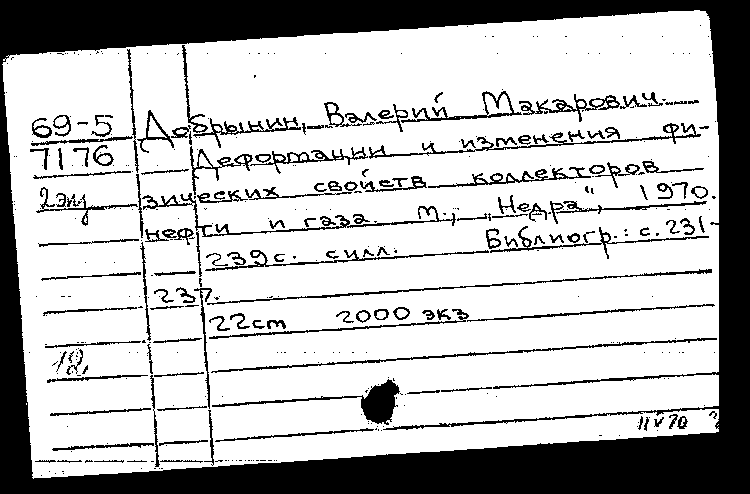 69-5 Добрынин, Валерий Макарович.
7176 Деформации и изменения фи-
2экз зических свойств коллекторов
нефти и газа. М., „Недра“, 1970.
239с. с илл. Библиогр.: с. 231-
237.
22cm 2000 экз
12
11 V 70